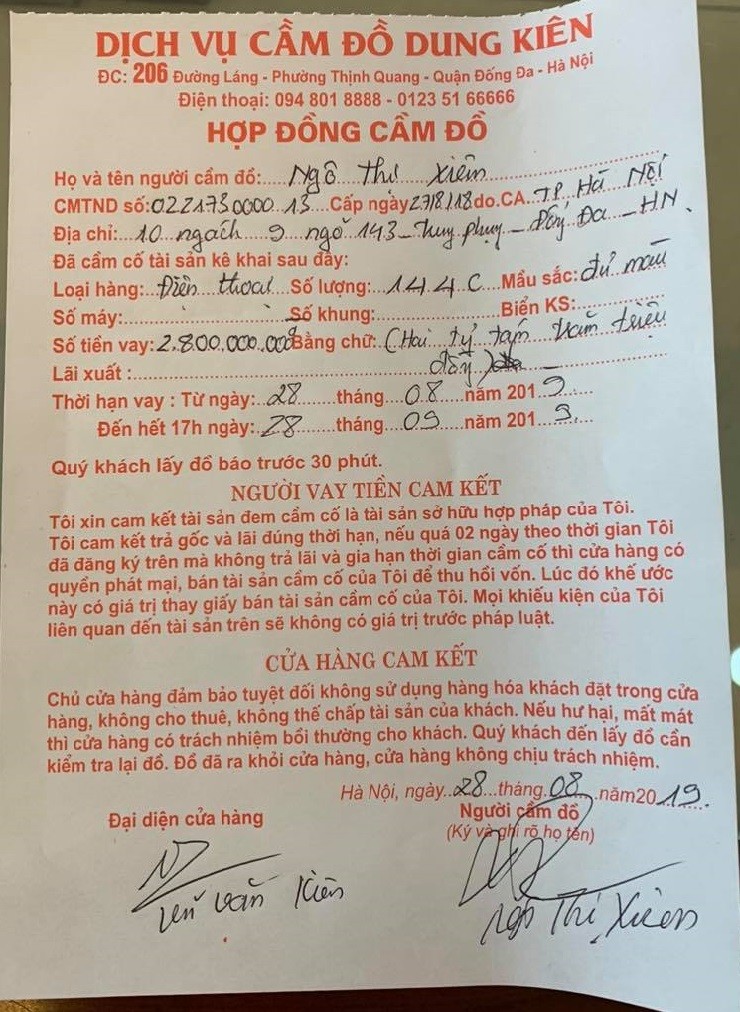 DỊCH VỤ CẦM ĐỒ DUNG KIÊN
ĐC: 206 Đường Láng - Phường Thịnh Quang - Quận Đống Đa - Hà Nội
Điện thoại: 094 801 8888 - 0123 51 66666
HỢP ĐỒNG CẦM ĐỒ
Họ và tên người cầm đồ:.....Ngô Thị Xiêm
CMTND số:022173000013...Cấp ngày 27/8/18 do.CA..TP, Hà Nội
Địa chỉ:..10 ngách 9 ngõ 143 - Đống Đa - HN.
Đã cầm cố tài sản kê khai sau đây:
Loại hàng: Điện thoại Số lượng:..144 C...Mầu sắc: đủ màu
Số máy:..........Số khung:..........Biển KS:..........
Số tiền vay: 2.800.000.000đ Bằng chữ: (Hai tỷ tám trăm triệu
Lãi xuất :.......... đồng)
Thời hạn vay : Từ ngày:..28.......tháng....08.....năm 2019...
Đến hết 17h ngày:..28.......tháng....09.....năm 2019...
Quý khách lấy đồ báo trước 30 phút.
NGƯỜI VAY TIỀN CAM KẾT
Tôi xin cam kết tài sản đem cầm cố là tài sản sở hữu hợp pháp của Tôi.
Tôi cam kết trả gốc và lãi đúng thời hạn, nếu quá 02 ngày theo thời gian Tôi
đã đăng ký trên mà không trả lãi và gia hạn thời gian cầm cố thì cửa hàng có
quyền phát mại, bán tài sản cầm cố của Tôi để thu hồi vốn. Lúc đó khế ước
này có giá trị thay giấy bán tài sản cầm cố của Tôi. Mọi khiếu kiện của Tôi
liên quan đến tài sản trên sẽ không có giá trị trước pháp luật.
CỬA HÀNG CAM KẾT
Chủ cửa hàng đảm bảo tuyệt đối không sử dụng hàng hóa khách đặt trong cửa
hàng, không cho thuê, không thế chấp tài sản của khách. Nếu hư hại, mất mát
thì cửa hàng có trách nhiệm bồi thường cho khách. Quý khách đến lấy đồ cần
kiểm tra lại đồ. Đồ đã ra khỏi cửa hàng, cửa hàng không chịu trách nhiệm.
Hà Nội, ngày..28...tháng.08...năm2019.
Đại diện cửa hàng
Người cầm đồ
(Ký và ghi rõ họ tên)
Văn Kiên
Ngô Thị Xiêm